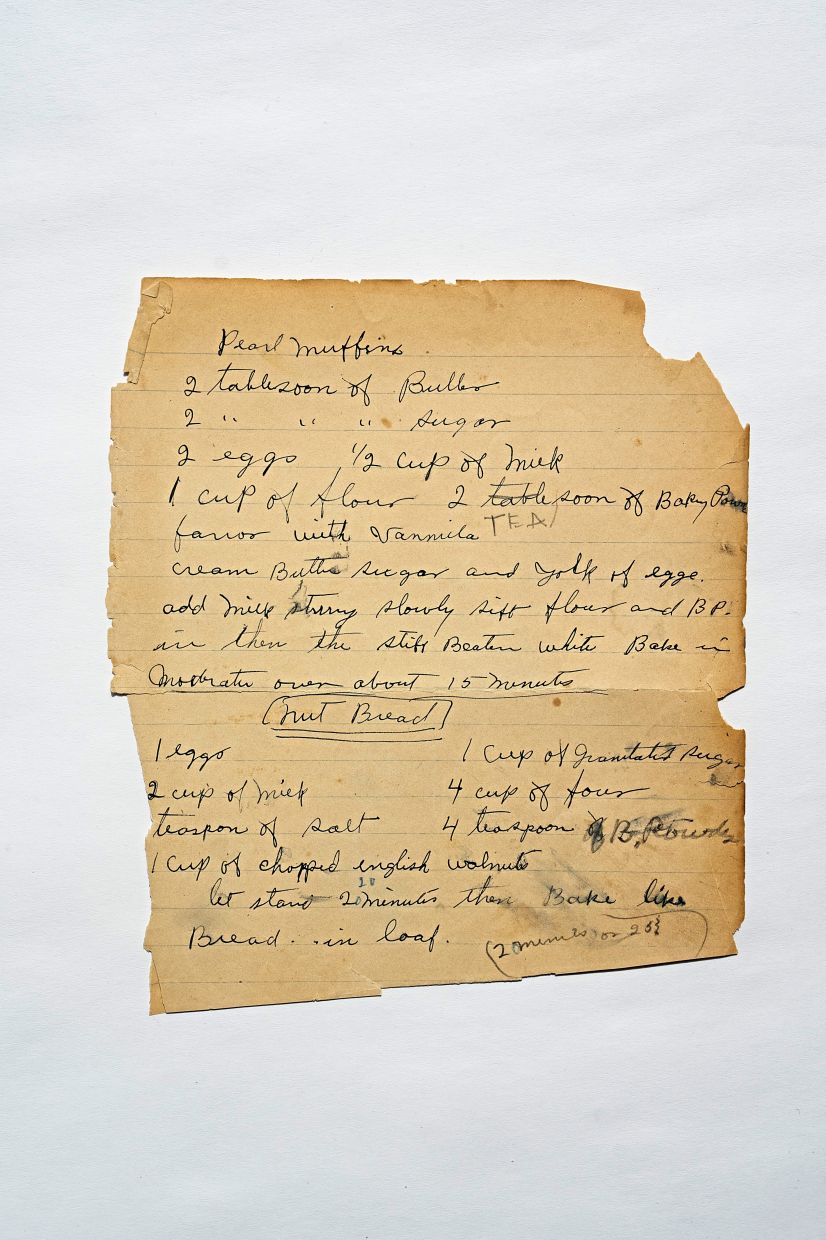 Pearl Muffins
2 tablesoon of Butter
2 " " " sugar
2 eggs 1/2 cup of Milk
1 cup of flour 2 tablesoon of Baky Pow
TEA
farvor with Vannila
cream Butter sugar and yolk of egge.
add Milk stirring slowly sift flour and B P.
in then the stiff Beaten white Bake in
Moderate oven about 15 Minutes
(Nut Bread)
1 eggs 1 cup of Granulated sugar
2 cup of Milk 4 cup of four
teaspon of salt 4 teaspoon of B. Powder
1 cup of chopped english walnuts
20
let stand 20 Minutes then Bake like
Bread . . in loaf.
(20 minutes or 25)